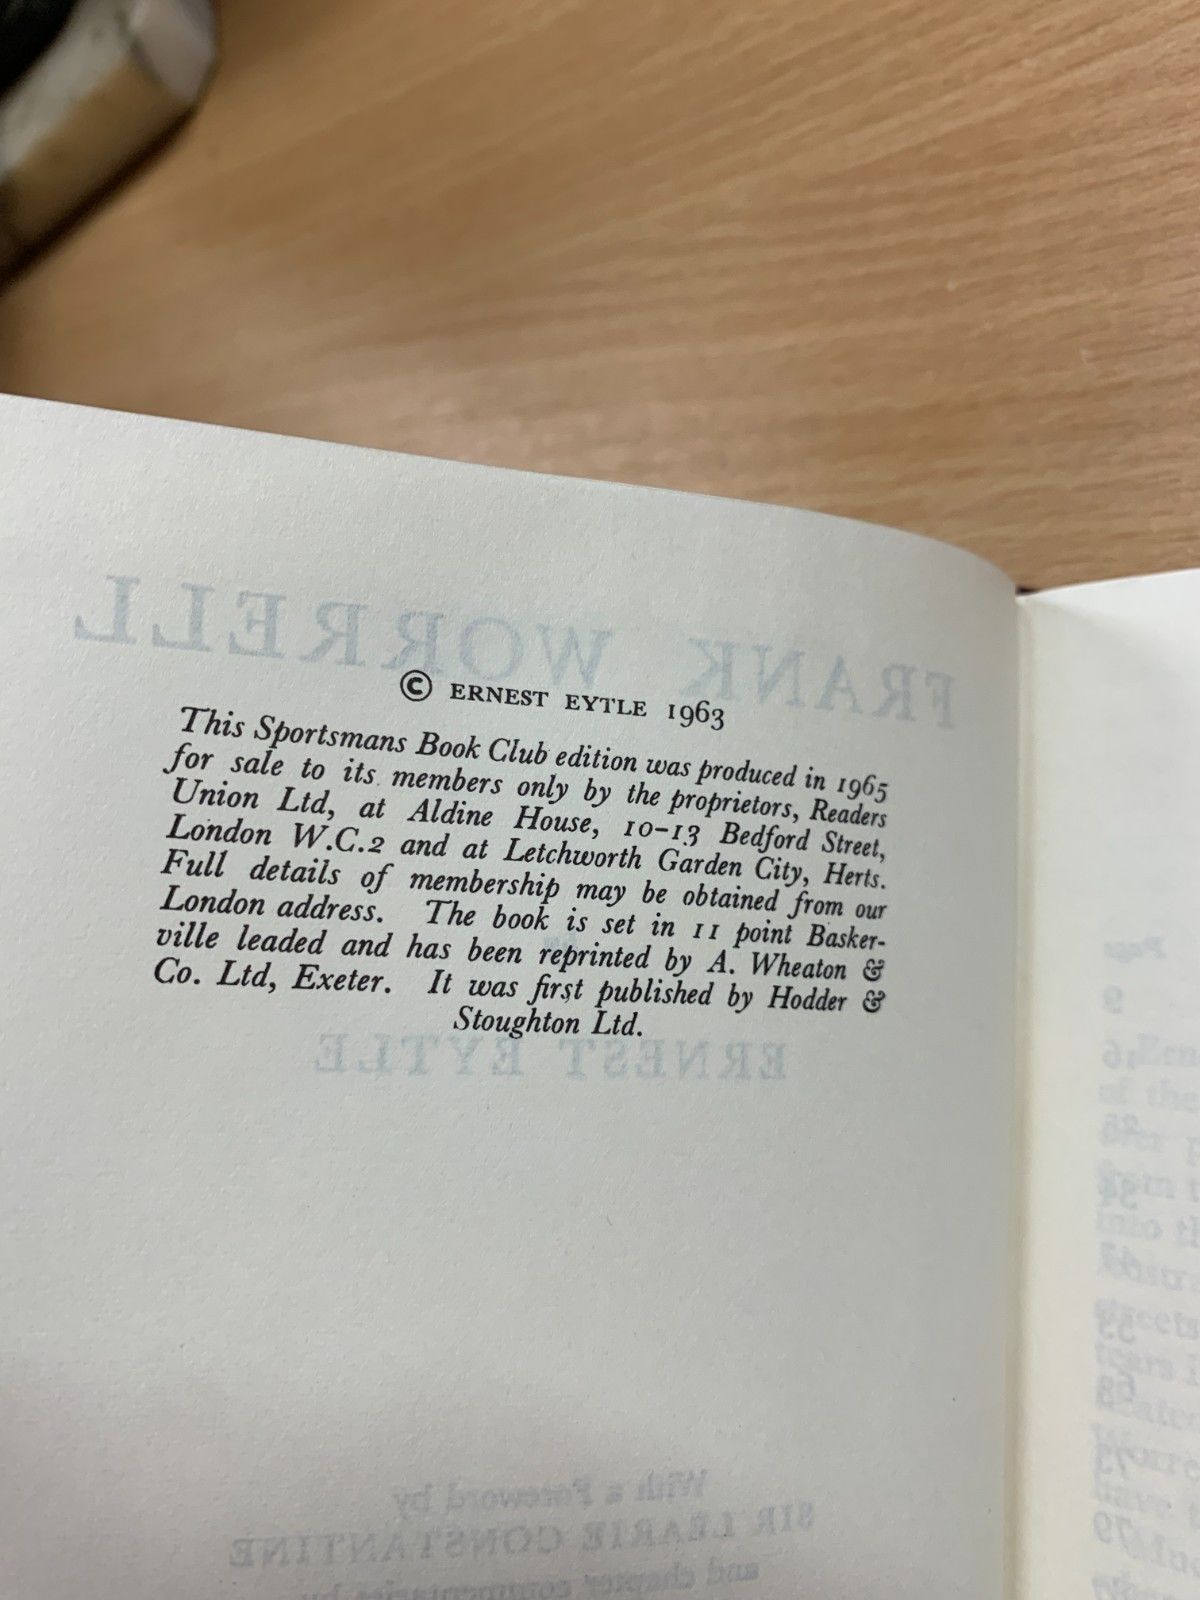 FRANK WORRELL
© ERNEST EYTLE 1963
This Sportsmans Book Club edition was produced in 1965
for sale to its members only by the proprietors, Readers
Union Ltd, at Aldine House, 10–13 Bedford Street,
London W.C.2 and at Letchworth Garden City, Herts.
Full details of membership may be obtained from our
London address. The book is set in 11 point Basker-
ville leaded and has been reprinted by A. Wheaton &
Co. Ltd, Exeter. It was first published by Hodder &
Stoughton Ltd.
ERNEST EYTLE
With a Foreword by
SIR LEARIE CONSTANTINE
and chapter commentaries by
Page
9